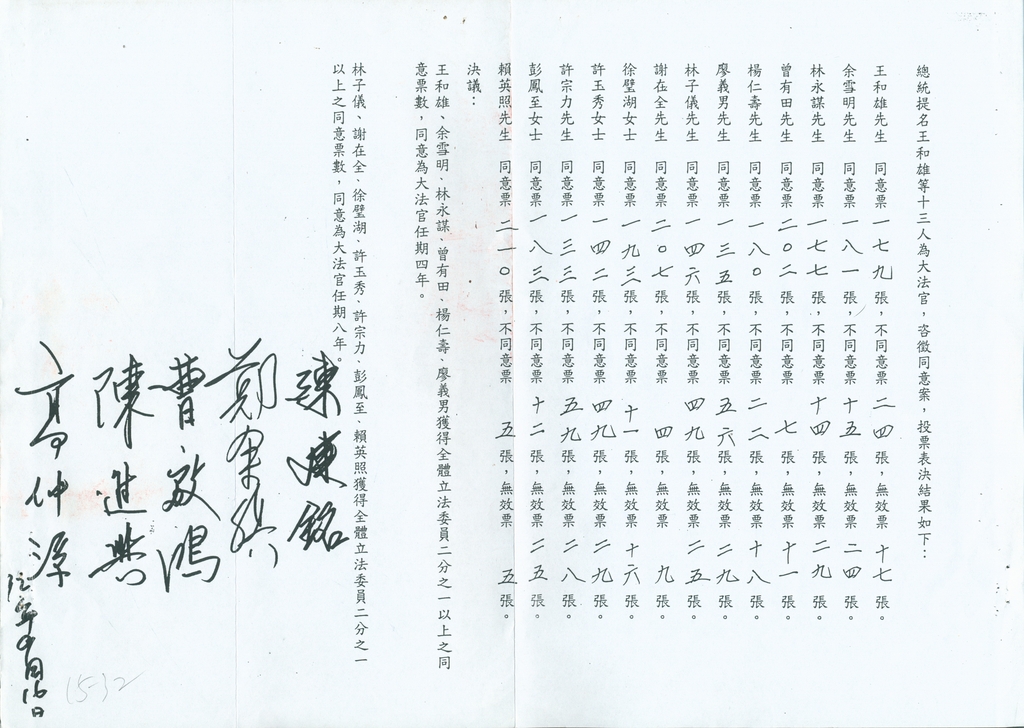 總統提名王和雄等十三人為大法官，咨徵同意案，投票表決結果如下：
王和雄先生 同意票一七九張，不同意票二四張，無效票十七張。
余雪明先生 同意票一八一張，不同意票十五張，無效票二四張。
林永謀先生 同意票一七七張，不同意票十四張，無效票二九張。
曾有田先生 同意票二〇二張，不同意票七張，無效票十一張。
楊仁壽先生 同意票一八〇張，不同意票二二張，無效票十八張。
廖義男先生 同意票一三五張，不同意票五六張，無效票二九張。
林子儀先生 同意票一四六張，不同意票四九張，無效票二五張。
謝在全先生 同意票二〇七張，不同意票四張，無效票九張。
徐璧湖女士 同意票一九三張，不同意票十一張，無效票十六張。
許玉秀女士 同意票一四二張，不同意票四九張，無效票二九張。
許宗力先生 同意票一三三張，不同意票五九張，無效票二八張。
彭鳳至女士 同意票一八三張，不同意票十二張，無效票二五張。
賴英照先生 同意票二一〇張，不同意票五張，無效票五張。
決議：
王和雄、余雪明、林永謀、曾有田、楊仁壽、廖義男獲得全體立法委員二分之一以上之同
意票數，同意為大法官任期四年。
林子儀、謝在全、徐璧湖、許玉秀、許宗力、彭鳳至、賴英照獲得全體立法委員二分之一
以上之同意票數，同意為大法官任期八年。
陳建銘
鄭余鎮
曹啟鴻
陳進興
高仲源
15-32